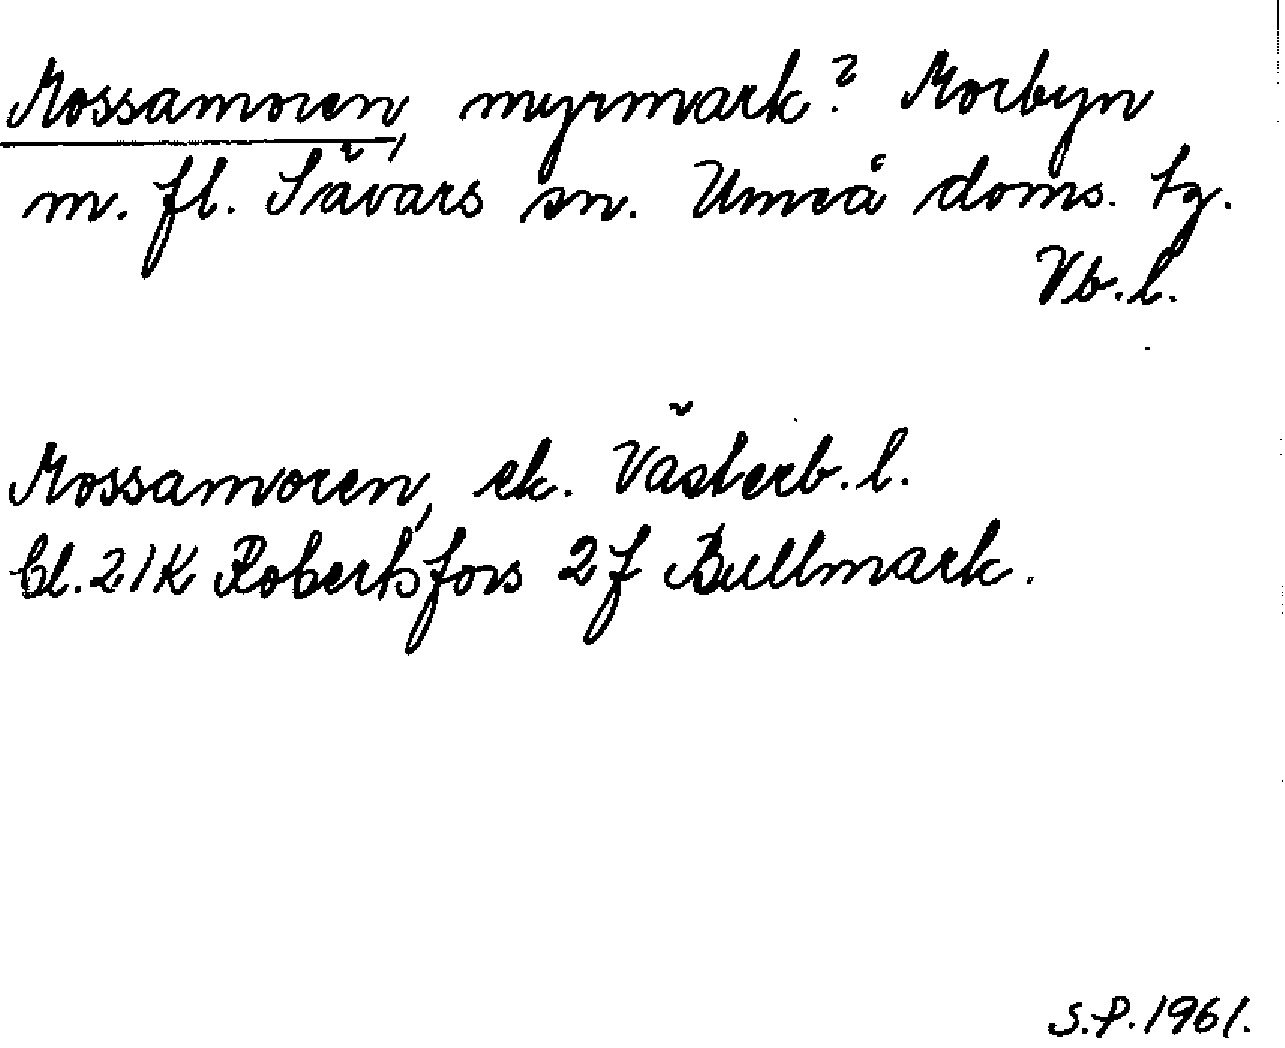 Mossamoren, myrmark? Morbyn
m. fl. Sävars sn. Umeå doms. tg.
Vb. l.
Mossamoren, ek. Västerb. l.
Bl. 21K Robertsfors 2f Bullmark.
S.P. 1961.